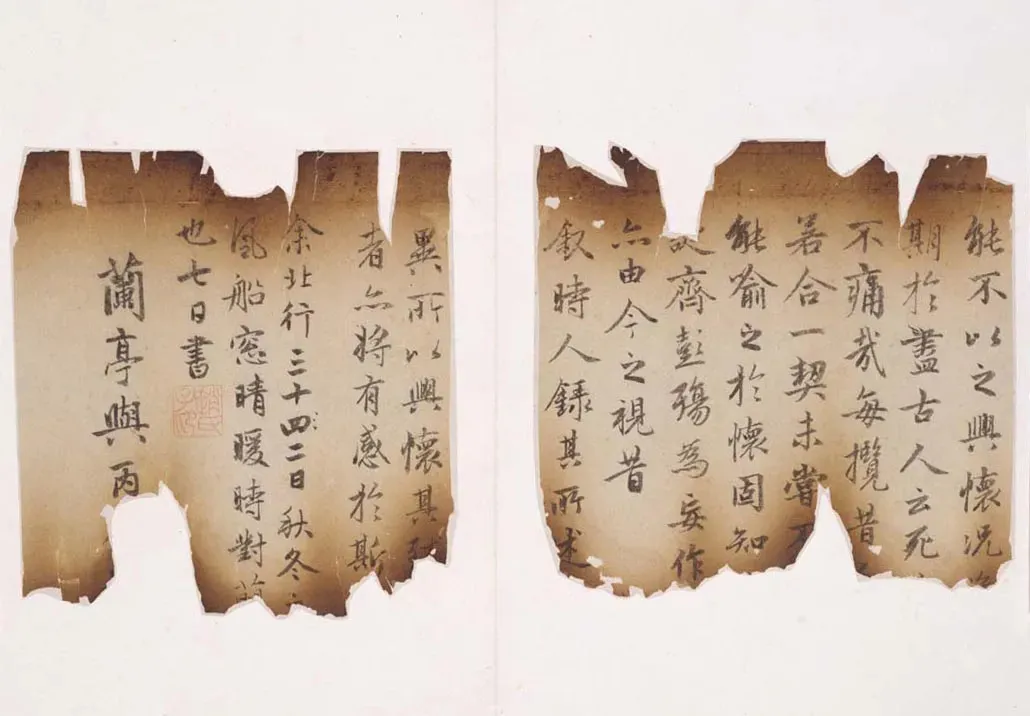 能不以之興懷況
期於盡古人云死
不痛哉每攬昔
若合一契未嘗不
能喻之於懷固知
誕齊彭殤為妄作
亦由今之視昔
敘時人錄其所述
異所以興懷其致
者亦將有感於斯
余北行三十四二日秋冬
風船窗晴暖時對蘭
也七日書
趙氏子昂
蘭亭與丙